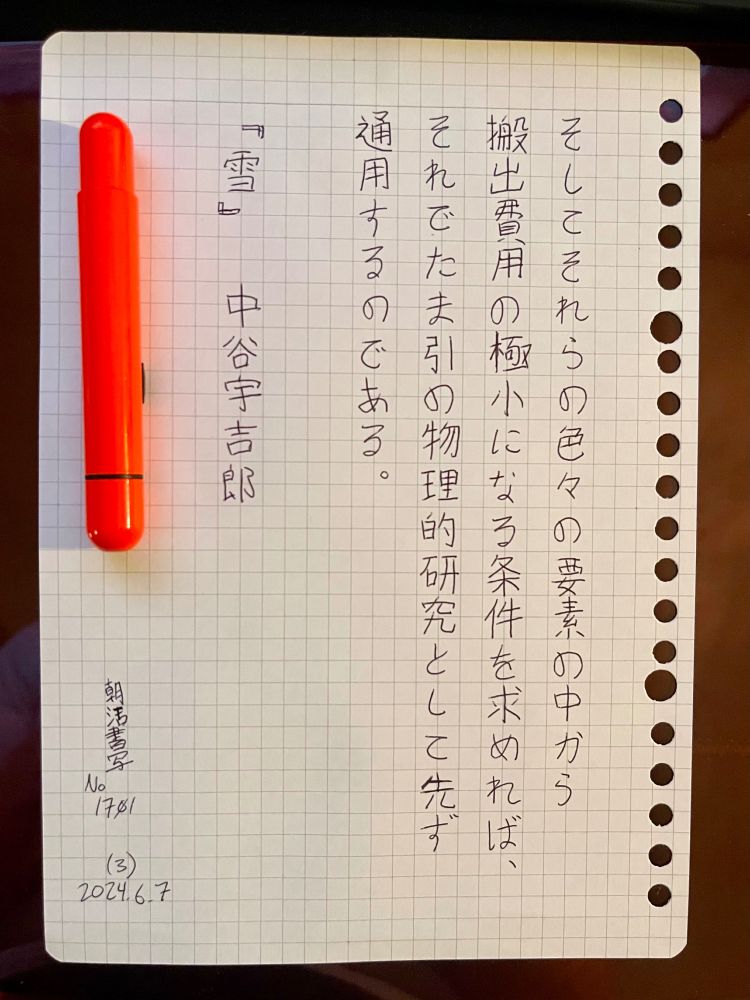 そしてそれらの色々の要素の中から
搬出費用の極小になる条件を求めれば、
それでたま引の物理的研究として先ず
通用するのである。
『雪』 中谷宇吉郎
朝活書写
No
1701
(3)
2024.6.7